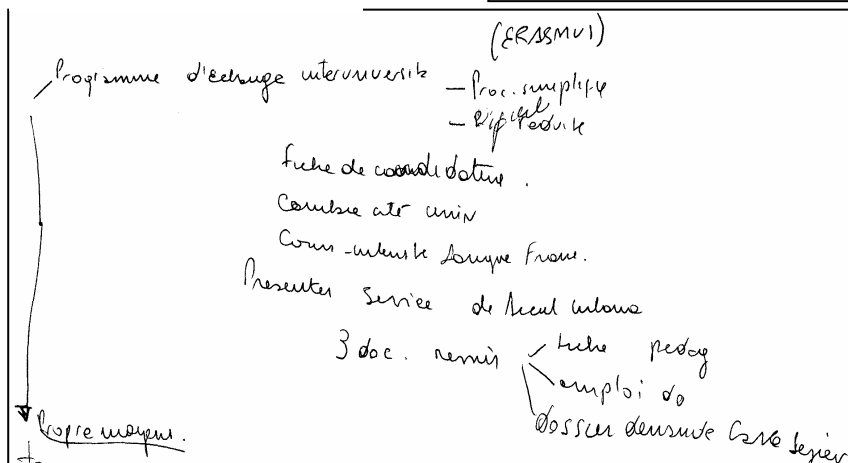 (ERASMUS)
Programme d'échange interuniversit
- Proc. simplifié
- réduite
fiche de candidature.
Cours intensif Langue Franc.
Presenter Service de
3 doc. remis
fiche pedag
emploi du
dossier demande Carte Sejour
Propre moyens.